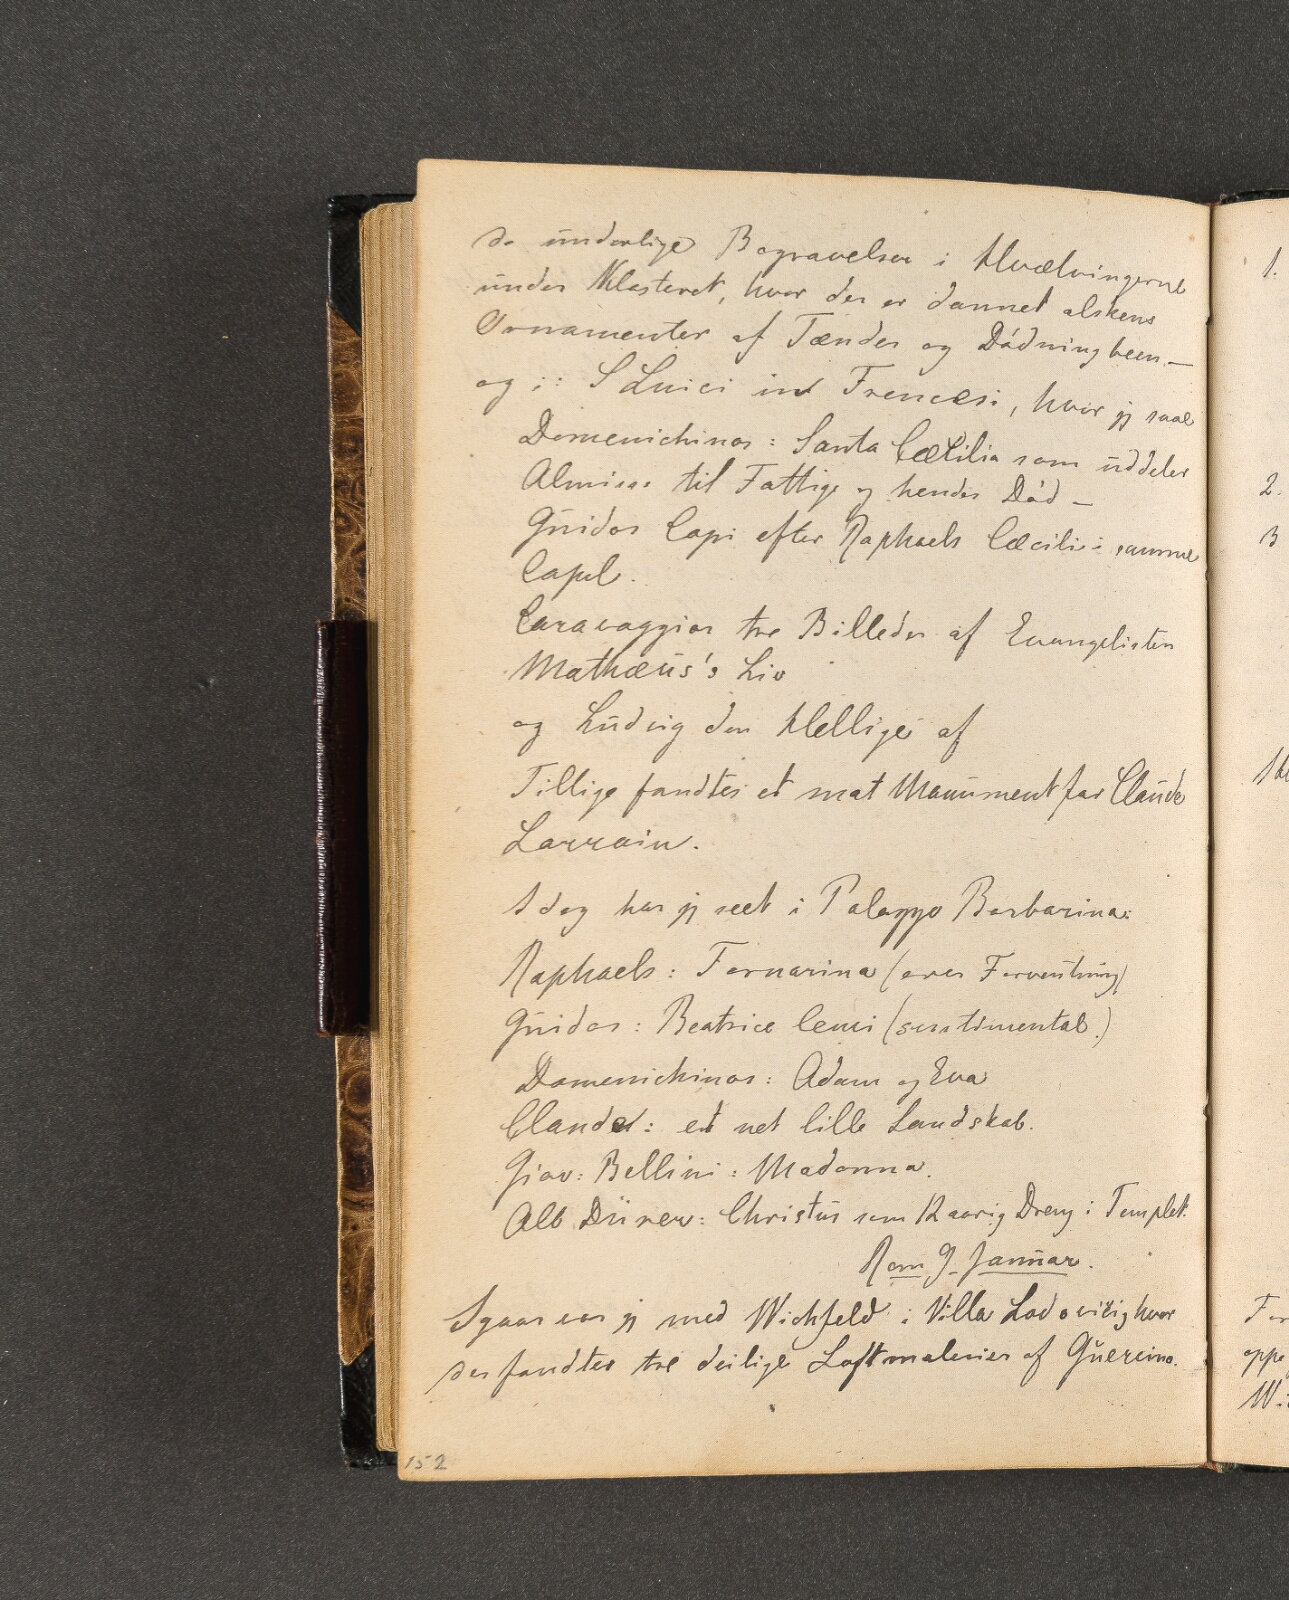 de underlige Begravelser i Hvælvingerne
under Klosteret, hvor der er dannet alskens
Ornamenter af Tænder og Dødningbeen —
og i: S Luici in Francesi, hvor jeg saae
Domenichinos: Santa Cæcilia som uddeler
Almisse til Fattige og hendes Død —
Guidos Copi efter Raphaels Cæcilie i samme
Capel.
Caravaggios tre Billeder af Evangelisten
Mathæus's Liv
og Ludvig den Hellige af
Tillige fandtes et mat Monument for Claude
Lorrain.
I dag har jeg seet i Palazzo Barbarina:
Raphaels: Fornarina (over Forventning)
Guidos: Beatrice Cenci (sentimental.)
Domenichinos: Adam og Eva
Claude: et net lille Landskab.
Giov: Bellini: Madonna.
Alb Dürer: Christus som 12 aarig Dreng i Templet.
Rom 9 Januar.
Igaar var jeg med Wichfeld i Villa Lodovisi, hvor
der fandtes tre deilige Loftmalerier af Guercino.
152
1.
2.
3
oppe